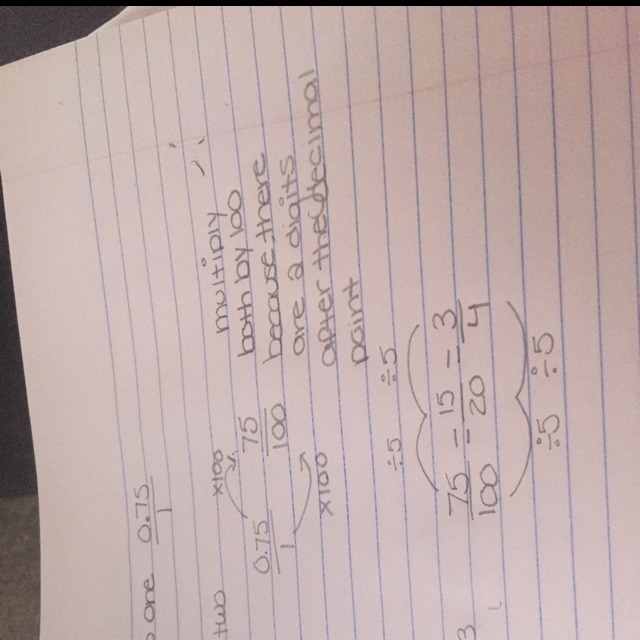 one 0.75
1
two
x100
0.75 75
1 100
x100
multiply
both by 100
because there
are 2 digits
after the decimal
point
3
÷5 ÷5
75 = 15 = 3
100 20 4
÷5 ÷5